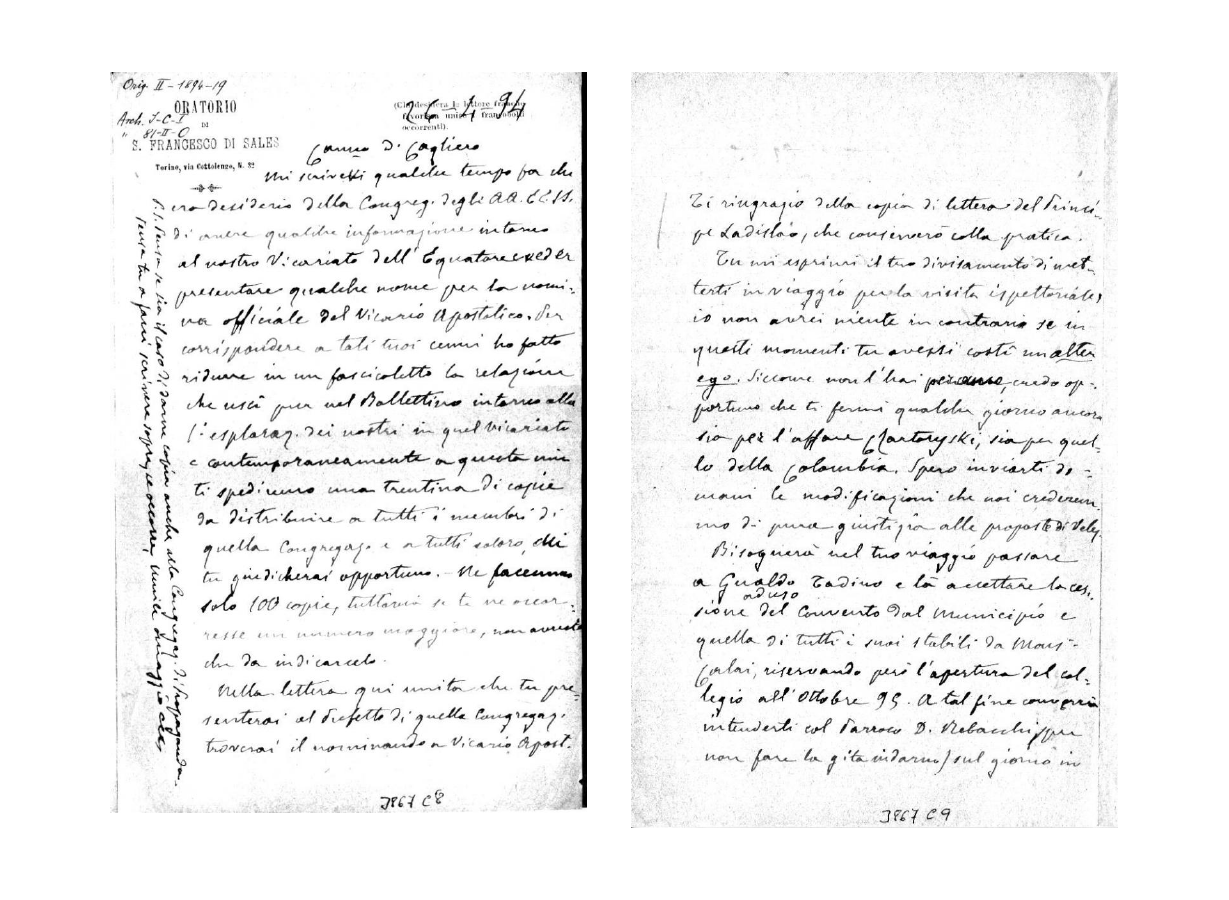 Orig. II - 1894-19
ORATORIO
DI
Arch. I-C-I
" 81-II-O
S. FRANCESCO DI SALES
Torino, via Cottolengo, N. 32
(Chi desidera le lettere franche
favorisca unire i francobolli
occorrenti).
26-4-94
Car.mo D. Cagliero
Mi scrivesti qualche tempo fa che
era desiderio della Congreg. degli AA. EE. SS.
di avere qualche informazione intorno
al nostro Vicariato dell'Equatore ed
presentare qualche nome per la nomi-
na officiale del Vicario Apostolico. Per
corrispondere a tali tuoi cenni ho fatto
ridurre in un fascicoletto la relazione
che uscì pur nel Bollettino intorno alla
l'esploraz. dei nostri in quel vicariato
e contemporaneamente a questa mia
ti spediremo una trentina di copie
da distribuire a tutti i membri di
quella Congregaz. e a tutti coloro, che
tu giudicherai opportuno. - Ne facemmo
solo 100 copie, tuttavia se te ne occor-
resse un numero maggiore, non avresti
che da indicarcelo.
Nella lettera qui unita che tu pre-
senterai al Prefetto di quella Congregaz.
troverai il nominando a Vicario Apost.
P.S. Pensa se sia il caso di darne copia anche alla Congregaz. di Propaganda.
Pensa tu a farvi scrivere sopra, se occorre,
J867 C8
Ti ringrazio della copia di lettera del Princi-
pe Ladislao, che conserverò colla pratica.
Tu mi esprimi il tuo divisamento di met-
terti in viaggio per la visita ispettoriale;
io non avrei niente in contrario se in
questi momenti tu avessi costì un alter
ego. Siccome non l'hai credo op-
portuno che ti fermi qualche giorno ancora
sia per l'affare Czartoryski, sia per quel-
lo della Colombia. Spero inviarti do-
mani le modificazioni che noi credurem-
mo di pura giustizia alle proposte di Velez.
Bisognerà nel tuo viaggio passare
a Gualdo Tadino e là accettare la ces-
ad uso
sione del Convento dal Municipio e
quella di tutti i suoi stabili da Mons.
Calai, riservando però l'apertura del col-
legio all'Ottobre 95. A tal fine converrà
intenderti col Parroco D. Ribacchi (per
non fare la gita indarno) sul giorno in
J867 C9